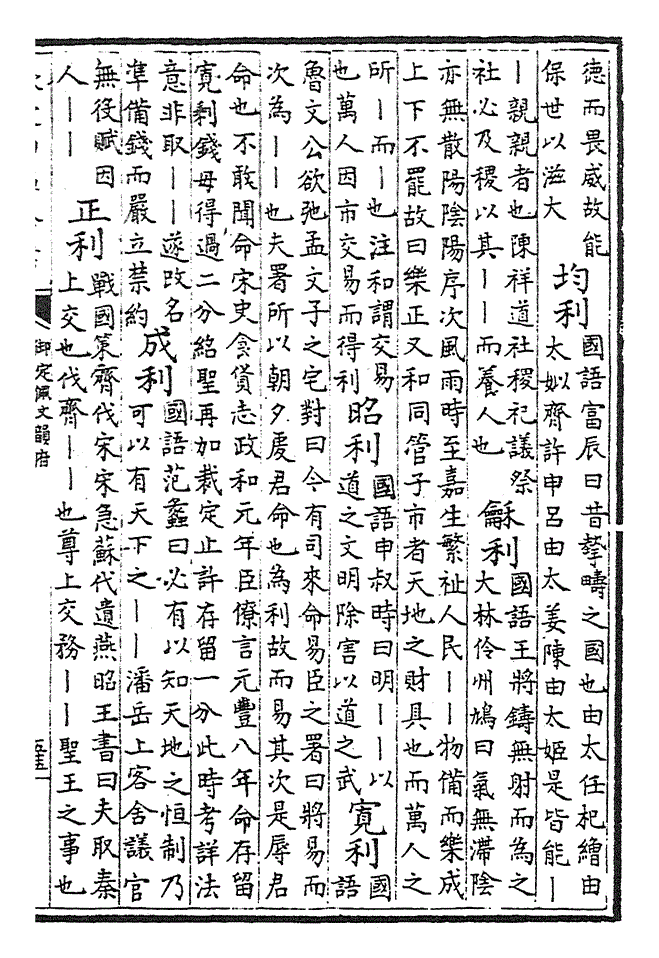 德而畏威故能
保世以滋大
均利
國語富辰曰昔摯疇之國也由太任杞繒由
太姒齊許申呂由太姜陳由太姬是皆能丨
丨親親者也陳祥道社稷祀議祭
社必及稷以其丨丨而養人也
龢利
國語王將鑄無射而為之
大林伶州鳩曰氣無滯陰
亦無散陽陰陽序次風雨時至嘉生繁祉人民丨丨物備而樂成
上下不罷故曰樂正又和同管子市者天地之財具也而萬人之
所丨而丨也注和謂交易
也萬人因市交易而得利
昭利
國語申叔時曰明丨丨以
道之文明除害以道之武
寛利
國語
魯文公欲弛孟文子之宅對曰今有司來命易臣之署曰將易而
次為丨丨也夫署所以朝夕虔君命也為利故而易其次是辱君
命也不敢聞命宋史食貨志政和元年臣僚言元豐八年命存留
寛剩錢毋得過二分紹聖再加裁定止許存留一分此時考詳法
意非取丨丨遂改名
準備錢而嚴立禁約
成利
國語范蠡曰必有以知天地之恒制乃
可以有天下之丨丨潘岳上客舍議官
無役賦因
人丨丨
正利
戰國策齊伐宋宋急蘇代遺燕昭王書曰夫取秦
上交也伐齊丨丨也尊上交務丨丨聖王之事也
御定佩文韻府